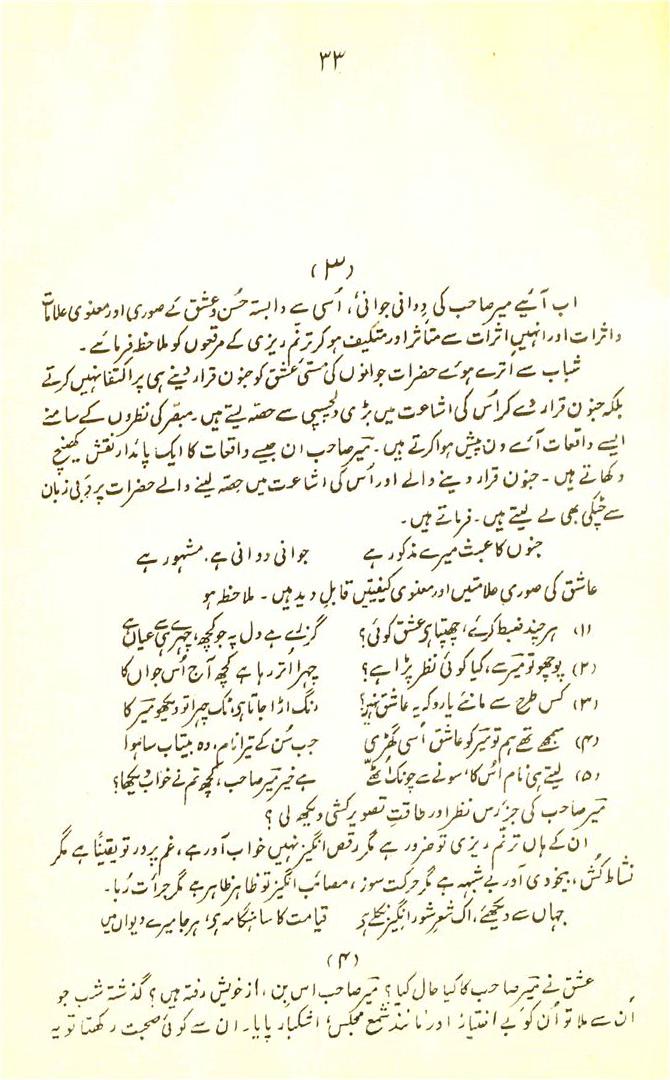 ۳۳
(۳)
اب آئیے میر صاحب کی دوانی جوانی، اُسی سے وابستہ حُسن و عشق کے صوری اور معنوی علامات
و اثرات اور انہیں اثرات سے متأثر اور متکیف ہو کر ترنّم ریزی کے مرقعوں کو ملاحظہ فرمائے۔
شباب سے اُترے ہوئے حضرات جوانوں کی مستیٔ عشق کو جنون قرار دینے ہی پر اکتفا نہیں کرتے
بلکہ جنون قرار دے کر اُس کی اشاعت میں بڑی دلچسپی سے حصّہ لیتے ہیں۔ مبصّر کی نظروں کے سامنے
ایسے واقعات آئے دن پیش ہوا کرتے ہیں۔ میرؔ صاحب ان جیسے واقعات کا ایک پائدار نقش کھینچ
دکھاتے ہیں۔ جنون قرار دینے والے اور اُس کی اشاعت میں حصّہ لینے والے حضرات پر دَبی زبان
سے چٹکی بھی لے لیتے ہیں۔ فرماتے ہیں۔
جنوں کا عبث میرے مذکور ہے جوانی دوانی ہے، مشہور ہے
عاشق کی صوری علامتیں اور معنوی کیفیتیں قابلِ دید ہیں۔ ملاحظہ ہو
(۱) ہر چند ضبط کرئے، چھپتا ہی عشق کوئی؟ گزرے ہے دل پہ جو کچھ، چہرے ہی سے عیاں ہے
(۲) پوچھو تو میرؔ سے، کیا کوئی نظر پڑا ہے؟ چہرا اُتر رہا ہے کچھ آج اُس جواں کا
(۳) کس طرح سے مانئے یارو کہ یہ عاشق نہیں؟ رنگ اڑا جاتا ہی، ٹک چہرا تو دیکھو میرؔ کا
(۴) سمجھے تھے ہم تو میرؔ کو عاشق اُسی گھڑی جب سُن کے تیرا نام، وہ بیتاب سا ہوا
(۵) لیتے ہی نام اُس کا، سونے سے چونک اُٹھے ہے خیر میرؔ صاحب، کچھ تم نے خواب دیکھا؟
میرؔ صاحب کی جز رس نظر اور طاقتِ تصویر کشی دیکھ لی؟
ان کے ہاں ترنّم ریزی تو ضرور ہے مگر رقص انگیز نہیں خواب آور ہے، غم پرور تو یقیناً ہے مگر
نشاط کُش، بیخودی آور بے شبہہ ہے مگر حرکت سوز، مصائب انگیز تو ظاہر ظاہر ہے مگر جرأت رُبا۔
جہاں سے دیکھئے، اک شعر شور انگیز نکلے ہی قیامت کا سا ہنگامہ ہی، ہر جا میرے دیواں میں
(۴)
عشق نے میرؔ صاحب کا کیا حال کیا؟ میرؔ صاحب اس بن، از خویش رفتہ ہیں؟ گذشتہ شب جو
اُن سے ملا تو اُن کو بے اختیار اور مانندِ شمعِ مجلس، اشکبار پایا۔ ان سے کوئی صحبت رکھتا تو یہ